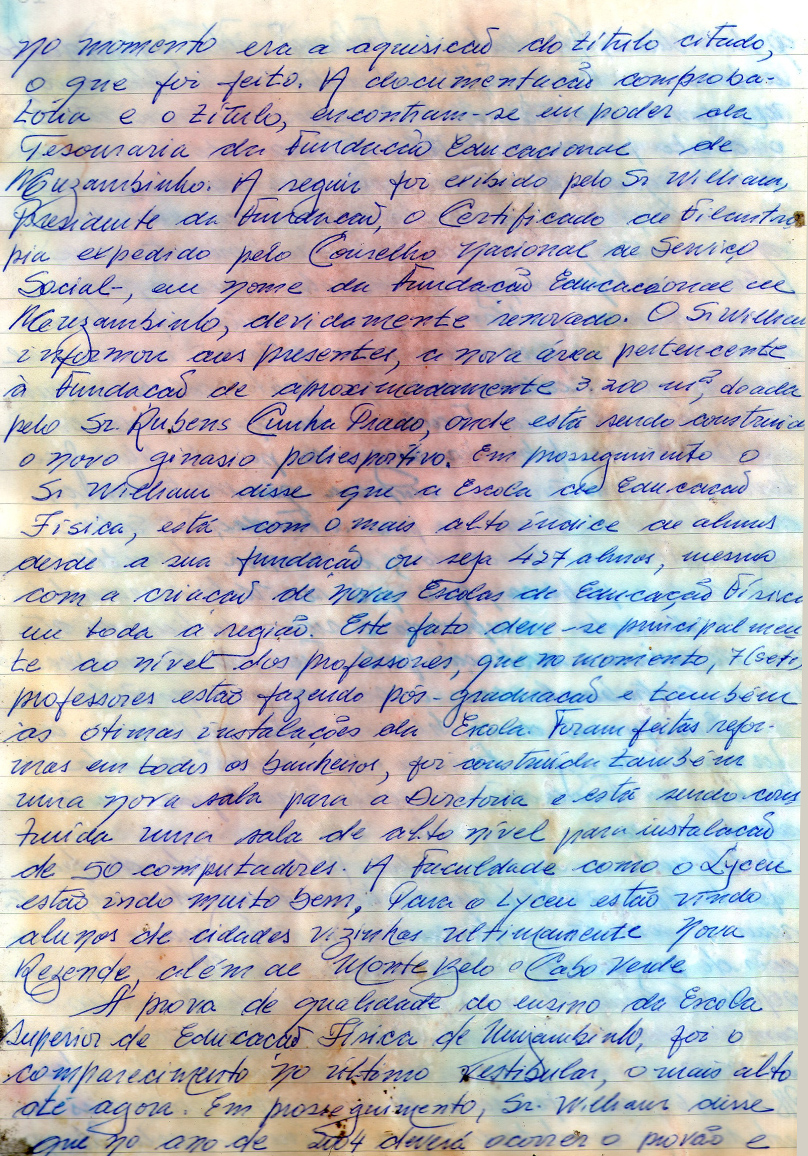 no momento era a aquisicão do título citado,
o que foi feito. A documentacão comproba-
tória e o título, encontram-se em poder da
Tesouraria da Fundacão Educacional de
Muzambinho. A seguir foi exibido pelo Sr William,
Presidente da Fundacão, o Certificado de Filantro
pia expedido pelo Conselho Nacional de Serviço
Social-, em nome da Fundacão Educacional de
Muzambinho, devidamente renovado. O Sr William
informou aos presentes, a nova área pertencente
à Fundacão de aproximadamente 3.200 m², doada
pelo Sr. Rubens Cunha Prado, onde está sendo construido
o novo ginasio poliesportivo. Em prosseguimento o
Sr William disse que a Escola de Educacão
Física, está com o mais alto índice de alunos
desde a sua fundacão ou seja 427 alunos, mesmo
com a criacão de novas Escolas de Educação Física
em toda a região. Este fato deve-se principalmen
te ao nível dos professores, que no momento, 7 (sete)
professores estão fazendo pós-graduacão e também
as ótimas instalações da Escola. Foram feitas refor-
mas em todos os banheiros, foi construída também
uma nova sala para a Diretoria e está sendo cons
truída uma sala de alto nível para instalacão
de 50 computadores. A Faculdade como o Lyceu
estão indo muito bem, Para o Lyceu estão vindo
alunos de cidades vizinhas ultimamente Nova
Rezende, além de Monte Belo e Cabo Verde
A prova de qualidade do ensino da Escola
Superior de Educacão Física de Muzambinho, foi o
comparecimento no último Vestibular, o mais alto
até agora. Em prosseguimento, Sr. William disse
que no ano de 2004 deverá ocorrer o provão e